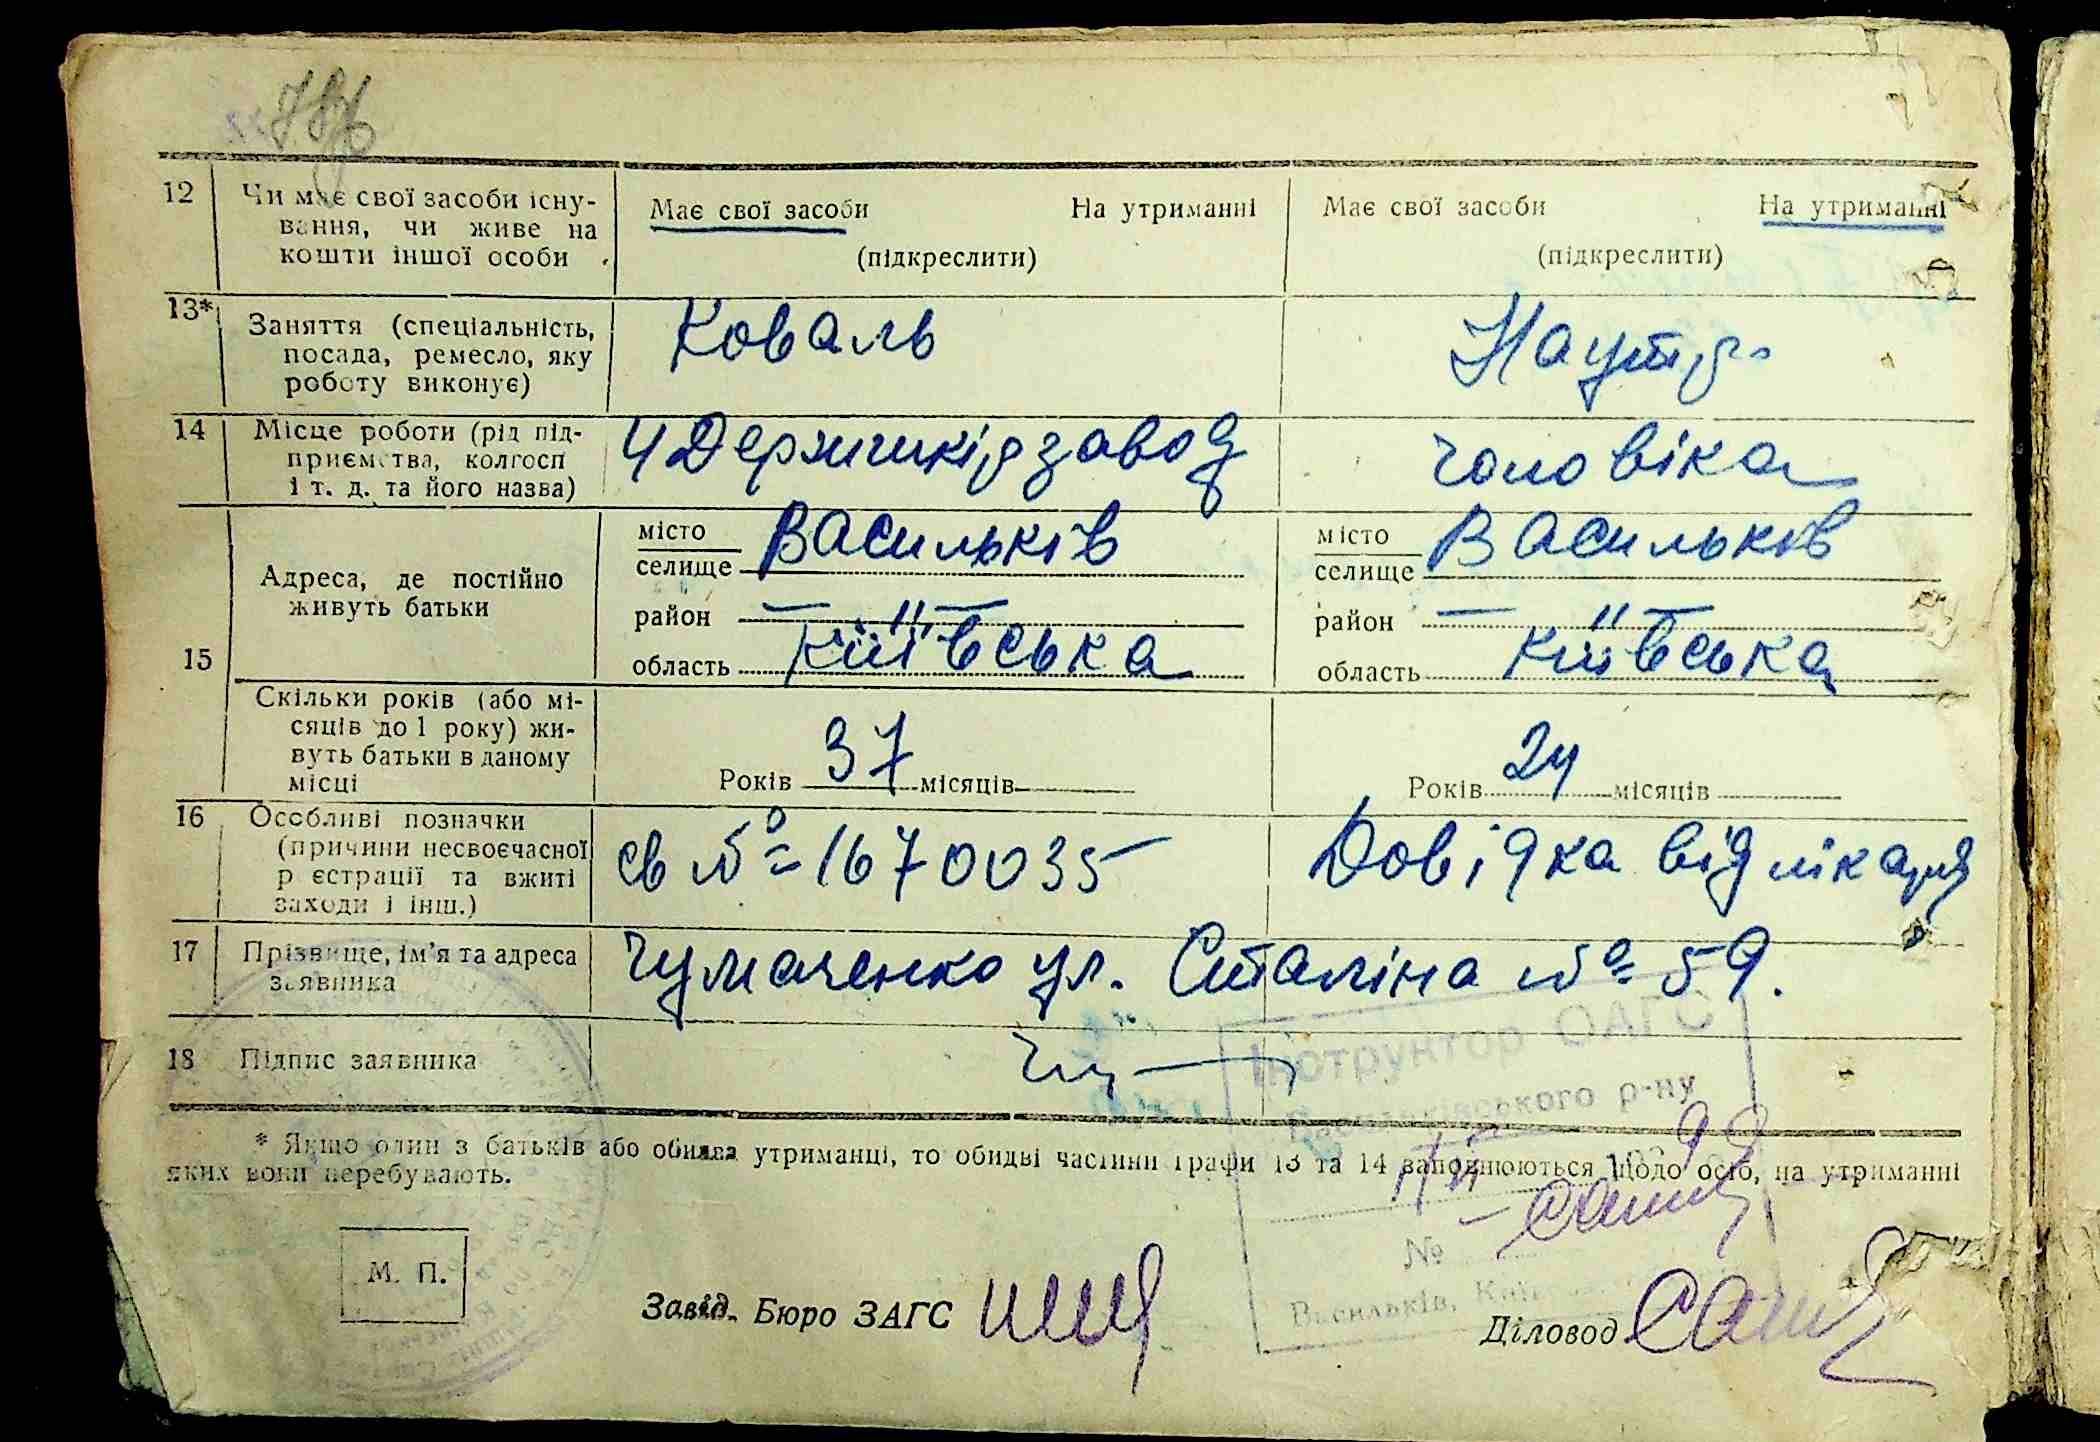 12 Чи має свої засоби існу-
вання, чи живе на
кошти іншої особи
Має свої засоби На утриманні
(підкреслити)
Має свої засоби На утриманні
(підкреслити)
13* Заняття (спеціальність,
посада, ремесло, яку
роботу виконує)
Коваль
На утр.
14 Місце роботи (рід під-
приємства, колгосп
і т. д. та його назва)
4 Держшкірзавод
чоловіка
15 Адреса, де постійно
живуть батьки
місто
селище Васильків
район —
область Київська
місто
селище Васильків
район —
область Київська
Скільки років (або мі-
сяців до 1 року) жи-
вуть батьки в даному
місці
Років 37 місяців
Років 24 місяців
16 Особливі позначки
(причини несвоєчасної
реєстрації та вжиті
заходи і інш.)
св № 1670035
Довідка від лікаря
17 Прізвище, ім'я та адреса
заявника
Чумаченко ул. Сталіна № 59.
18 Підпис заявника
Інструктор ОАГС
Васильківського р-ну
* Якщо один з батьків або обидва утриманці, то обидві частини графи 13 та 14 заповнюються щодо осіб, на утриманні
яких вони перебувають.
№
Васильків, Київ
М. П.
Завід. Бюро ЗАГС
Діловод